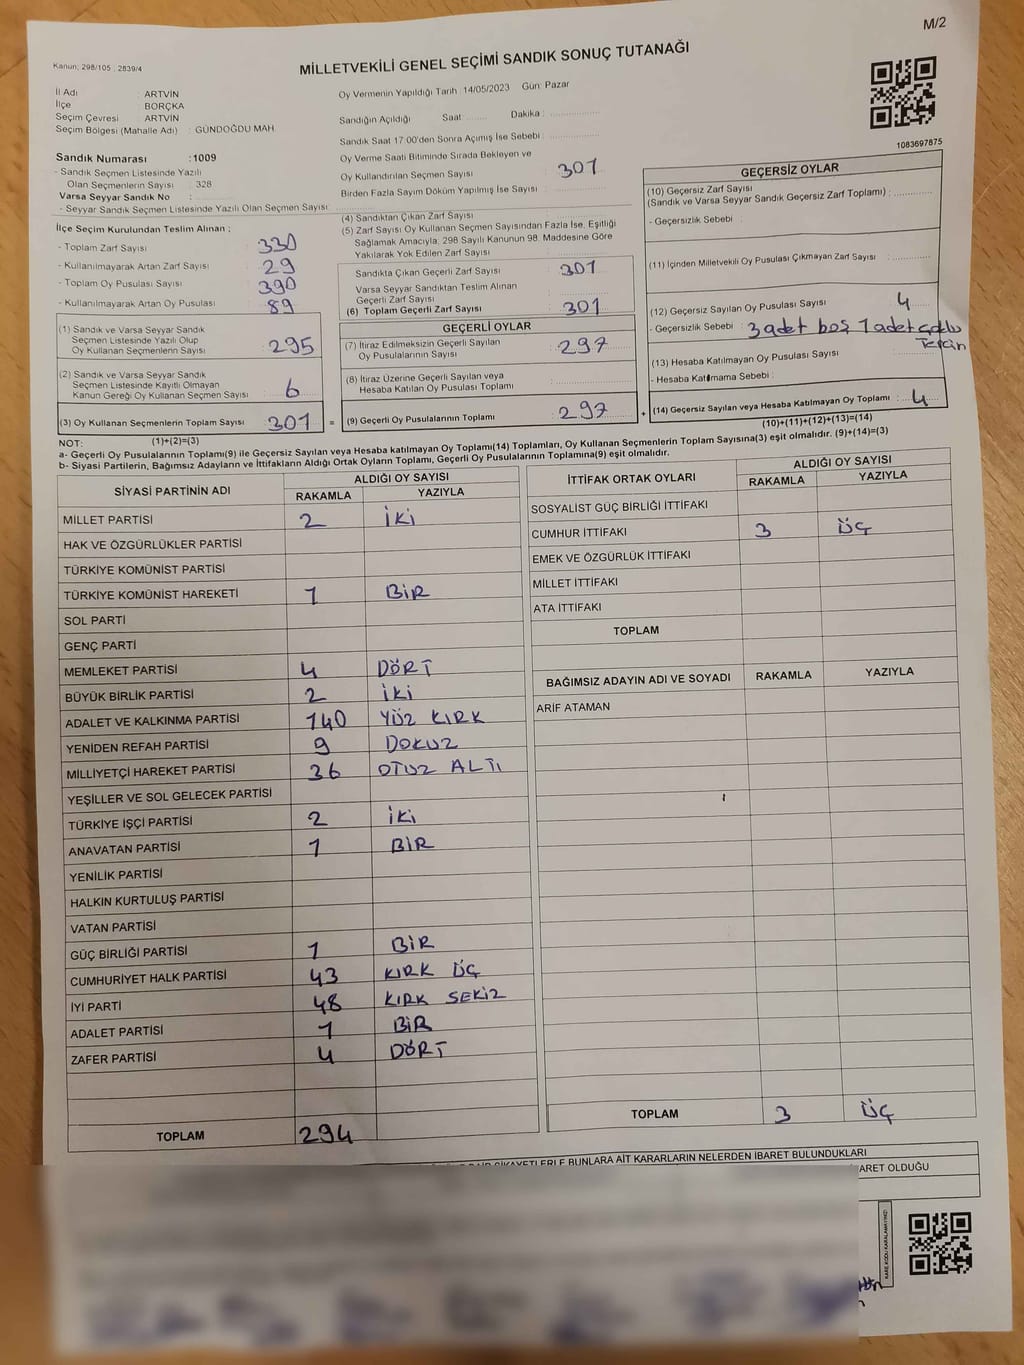 M/2
Kanun; 298/105 ; 2839/4
MİLLETVEKİLİ GENEL SEÇİMİ SANDIK SONUÇ TUTANAĞI
İl Adı : ARTVİN
İlçe : BORÇKA
Seçim Çevresi : ARTVİN
Seçim Bölgesi (Mahalle Adı) : GÜNDOĞDU MAH.
Sandık Numarası : 1009
- Sandık Seçmen Listesinde Yazılı
Olan Seçmenlerin Sayısı : 328
Varsa Seyyar Sandık No :
- Seyyar Sandık Seçmen Listesinde Yazılı Olan Seçmen Sayısı:
Oy Vermenin Yapıldığı Tarih : 14/05/2023 Gün: Pazar
Sandığın Açıldığı Saat : Dakika :
Sandık Saat 17.00'den Sonra Açımış İse Sebebi :
Oy Verme Saati Bitiminde Sırada Bekleyen ve
Oy Kullandırılan Seçmen Sayısı : 301
Birden Fazla Sayım Döküm Yapılmış İse Sayısı :
1083697875
İlçe Seçim Kurulundan Teslim Alınan ;
- Toplam Zarf Sayısı : 330
- Kullanılmayarak Artan Zarf Sayısı : 29
- Toplam Oy Pusulası Sayısı : 390
- Kullanılmayarak Artan Oy Pusulası : 89
(1) Sandık ve Varsa Seyyar Sandık
Seçmen Listesinde Yazılı Olup
Oy Kullanan Seçmenlerin Sayısı : 295
(2) Sandık ve Varsa Seyyar Sandık
Seçmen Listesinde Kayıtlı Olmayan
Kanun Gereği Oy Kullanan Seçmen Sayısı : 6
(3) Oy Kullanan Seçmenlerin Toplam Sayısı : 301 =
(1)+(2)=(3)
(4) Sandıktan Çıkan Zarf Sayısı :
(5) Zarf Sayısı Oy Kullanan Seçmen Sayısından Fazla İse, Eşitliği
Sağlamak Amacıyla, 298 Sayılı Kanunun 98. Maddesine Göre
Yakılarak Yok Edilen Zarf Sayısı :
Sandıkta Çıkan Geçerli Zarf Sayısı : 301
Varsa Seyyar Sandıktan Teslim Alınan
Geçerli Zarf Sayısı :
(6) Toplam Geçerli Zarf Sayısı : 301
GEÇERLİ OYLAR
(7) İtiraz Edilmeksizin Geçerli Sayılan
Oy Pusulalarının Sayısı : 297
(8) İtiraz Üzerine Geçerli Sayılan veya
Hesaba Katılan Oy Pusulası Toplamı :
(9) Geçerli Oy Pusulalarının Toplamı : 297 +
GEÇERSİZ OYLAR
(10) Geçersiz Zarf Sayısı
(Sandık ve Varsa Seyyar Sandık Geçersiz Zarf Toplamı) :
- Geçersizlik Sebebi :
(11) İçinden Milletvekili Oy Pusulası Çıkmayan Zarf Sayısı :
(12) Geçersiz Sayılan Oy Pusulası Sayısı : 4
- Geçersizlik Sebebi : 3 adet boş 1 adet çoklu
Tercin
(13) Hesaba Katılmayan Oy Pusulası Sayısı :
- Hesaba Katılmama Sebebi :
(14) Geçersiz Sayılan veya Hesaba Katılmayan Oy Toplamı : 4
(10)+(11)+(12)+(13)=(14)
NOT:
a- Geçerli Oy Pusulalarının Toplamı(9) ile Geçersiz Sayılan veya Hesaba katılmayan Oy Toplamı(14) Toplamları, Oy Kullanan Seçmenlerin Toplam Sayısına(3) eşit olmalıdır. (9)+(14)=(3)
b- Siyasi Partilerin, Bağımsız Adayların ve İttifakların Aldığı Ortak Oyların Toplamı, Geçerli Oy Pusulalarının Toplamına(9) eşit olmalıdır.
SİYASİ PARTİNİN ADI
ALDIĞI OY SAYISI
RAKAMLA YAZIYLA
MİLLET PARTİSİ 2 İKİ
HAK VE ÖZGÜRLÜKLER PARTİSİ
TÜRKİYE KOMÜNİST PARTİSİ
TÜRKİYE KOMÜNİST HAREKETİ 1 BİR
SOL PARTİ
GENÇ PARTİ
MEMLEKET PARTİSİ 4 DÖRT
BÜYÜK BİRLİK PARTİSİ 2 İKİ
ADALET VE KALKINMA PARTİSİ 140 YÜZ KIRK
YENİDEN REFAH PARTİSİ 9 DOKUZ
MİLLİYETÇİ HAREKET PARTİSİ 36 OTUZ ALTI
YEŞİLLER VE SOL GELECEK PARTİSİ
TÜRKİYE İŞÇİ PARTİSİ 2 İKİ
ANAVATAN PARTİSİ 1 BİR
YENİLİK PARTİSİ
HALKIN KURTULUŞ PARTİSİ
VATAN PARTİSİ
GÜÇ BİRLİĞİ PARTİSİ 1 BİR
CUMHURİYET HALK PARTİSİ 43 KIRK ÜÇ
İYİ PARTİ 48 KIRK SEKİZ
ADALET PARTİSİ 1 BİR
ZAFER PARTİSİ 4 DÖRT
TOPLAM 294
İTTİFAK ORTAK OYLARI
ALDIĞI OY SAYISI
RAKAMLA YAZIYLA
SOSYALİST GÜÇ BİRLİĞİ İTTİFAKI
CUMHUR İTTİFAKI 3 ÜÇ
EMEK VE ÖZGÜRLÜK İTTİFAKI
MİLLET İTTİFAKI
ATA İTTİFAKI
TOPLAM
BAĞIMSIZ ADAYIN ADI VE SOYADI RAKAMLA YAZIYLA
ARİF ATAMAN
TOPLAM 3 ÜÇ
ŞİKAYETLERLE BUNLARA AİT KARARLARIN NELERDEN İBARET BULUNDUKLARI
ARET OLDUĞU